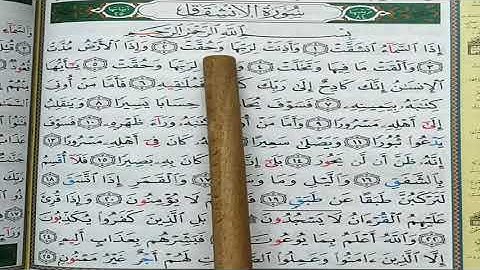 سُورَةُ الانشِقَاقِ
بِسْمِ ٱللَّهِ ٱلرَّحْمَٰنِ ٱلرَّحِيمِ
إِذَا ٱلسَّمَآءُ ٱنشَقَّتْ ١ وَأَذِنَتْ لِرَبِّهَا وَحُقَّتْ ٢ وَإِذَا ٱلْأَرْضُ مُدَّتْ
٣ وَأَلْقَتْ مَا فِيهَا وَتَخَلَّتْ ٤ لِرَبِّهَا وَحُقَّتْ ٥ يَٰٓأَيُّهَا
ٱلْإِنسَٰنُ إِنَّكَ كَادِحٌ إِلَىٰ رَبِّكَ فَمُلَٰقِيهِ ٦ فَأَمَّا مَنْ أُوتِىَ
كِتَٰبَهُۥ بِيَمِينِهِۦ ٧ فَسَوْفَ حِسَابًا يَسِيرًا ٨ وَيَنقَلِبُ
إِلَىٰٓ أَهْلِهِۦ مَسْرُورًا ٩ وَأَمَّا مَنْ وَرَآءَ ظَهْرِهِۦ ١٠ فَسَوْفَ
يَدْعُوا۟ ثُبُورًا ١١ وَيَصْلَىٰ إِنَّهُۥ كَانَ فِىٓ أَهْلِهِۦ مَسْرُورًا ١٣
إِنَّهُۥ ظَنَّ أَن لَّن يَحُورَ ١٤ بَلَىٰٓ كَانَ بِهِۦ بَصِيرًا ١٥ فَلَآ أُقْسِمُ
بِٱلشَّفَقِ ١٦ وَٱلَّيْلِ وَمَا وَٱلْقَمَرِ إِذَا ٱتَّسَقَ ١٨
لَتَرْكَبُنَّ طَبَقًا عَن طَبَقٍ لَهُمْ لَا يُؤْمِنُونَ ٢٠ وَإِذَا قُرِئَ
عَلَيْهِمُ ٱلْقُرْءَانُ لَا يَسْجُدُونَ بَلِ ٱلَّذِينَ كَفَرُوا۟ يُكَذِّبُونَ
٢٢ وَٱللَّهُ أَعْلَمُ بِمَا يُوعُونَ فَبَشِّرْهُم بِعَذَابٍ أَلِيمٍ ٢٤
إِلَّا ٱلَّذِينَ ءَامَنُوا۟ وَعَمِلُوا۟ لَهُمْ أَجْرٌ غَيْرُ مَمْنُونٍۭ ٢٥